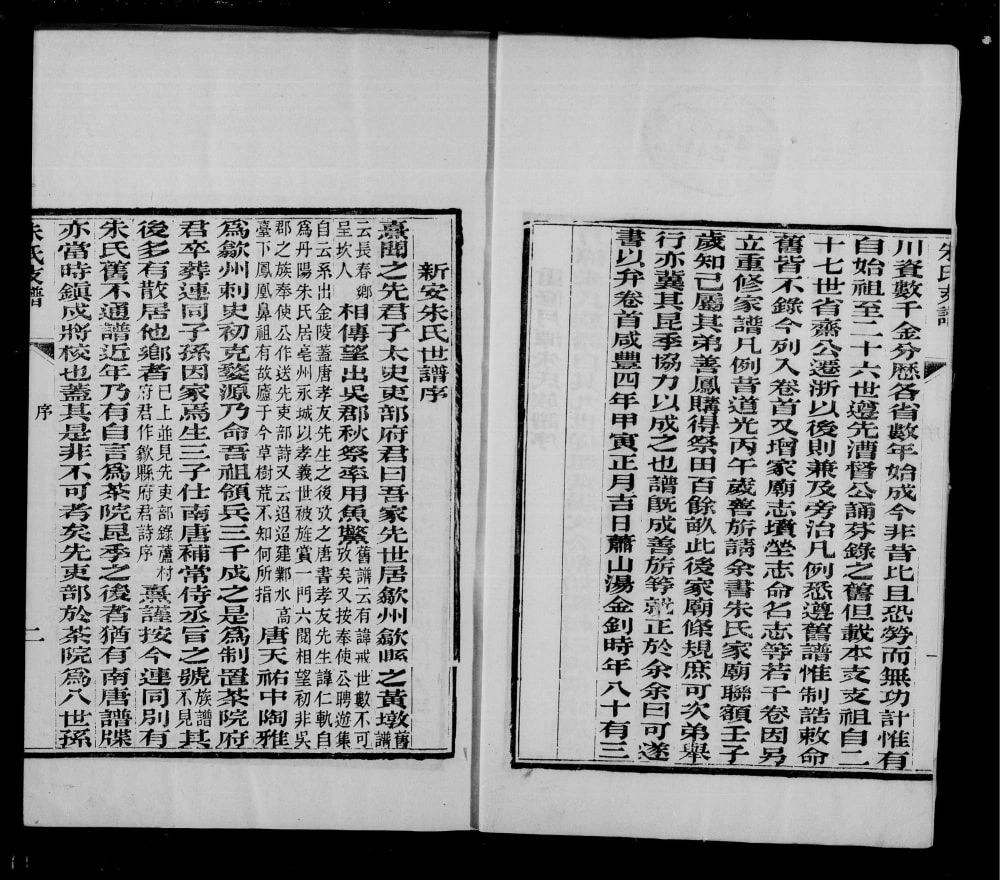 朱氏支譜
川資數千金分歷各省數年始成今非昔比且恐勞而無功計惟有
自始祖至二十六世遵先漕督公誦芬錄之舊但載本支支祖自二
十七世省齋公遷浙以後則兼及旁治凡例悉遵舊譜惟制誥敕命
舊皆不錄今列入卷首又增家廟志墳塋志命名志等若干卷因另
立重修家譜凡例昔道光丙午歲善旂請余書朱氏家廟聯額壬子
歲知己屬其弟善鳳購得祭田百餘畝此後家廟條規庶可次弟舉
行亦冀其昆季協力以成之也譜既成善旂等就正於余余曰可遂
書以弁卷首咸豐四年甲寅正月吉日蕭山湯金釗時年八十有三
新安朱氏世譜序
熹聞之先君子太史吏部府君曰吾家先世居歙州歙縣之黃墩舊譜
云長春鄉呈坎人相傳望出吳郡秋祭率用魚鱉舊譜云有諱戒世數不可
攷矣又按奉使公聘遊集自云系出金陵蓋唐孝友先生之後攷之唐書孝友先生諱仁軌自
為丹陽朱氏居亳州永城以孝義世被旌賞一門六闕相望初非吳
郡之族奉使公作送先吏部詩又云迢迢建鄴水高
臺下鳳凰鼻祖有故廬于今草樹荒不知何所指唐天祐中陶雅
為歙州刺史初克婺源乃命吾祖領兵三千戍之是為制置茶院府
君卒葬連同子孫因家焉生三子仕南唐補常侍丞旨之號族譜不見其
後多有散居他鄉者已上並見先吏部錄蘆村府君作歙縣府君詩序熹謹按今連同別有
朱氏舊不通譜近年乃有自言為茶院昆季之後者猶有南唐譜牒
亦當時鎮戍將校也蓋其是非不可考矣先吏部於茶院為八世孫
朱氏支譜
序
二